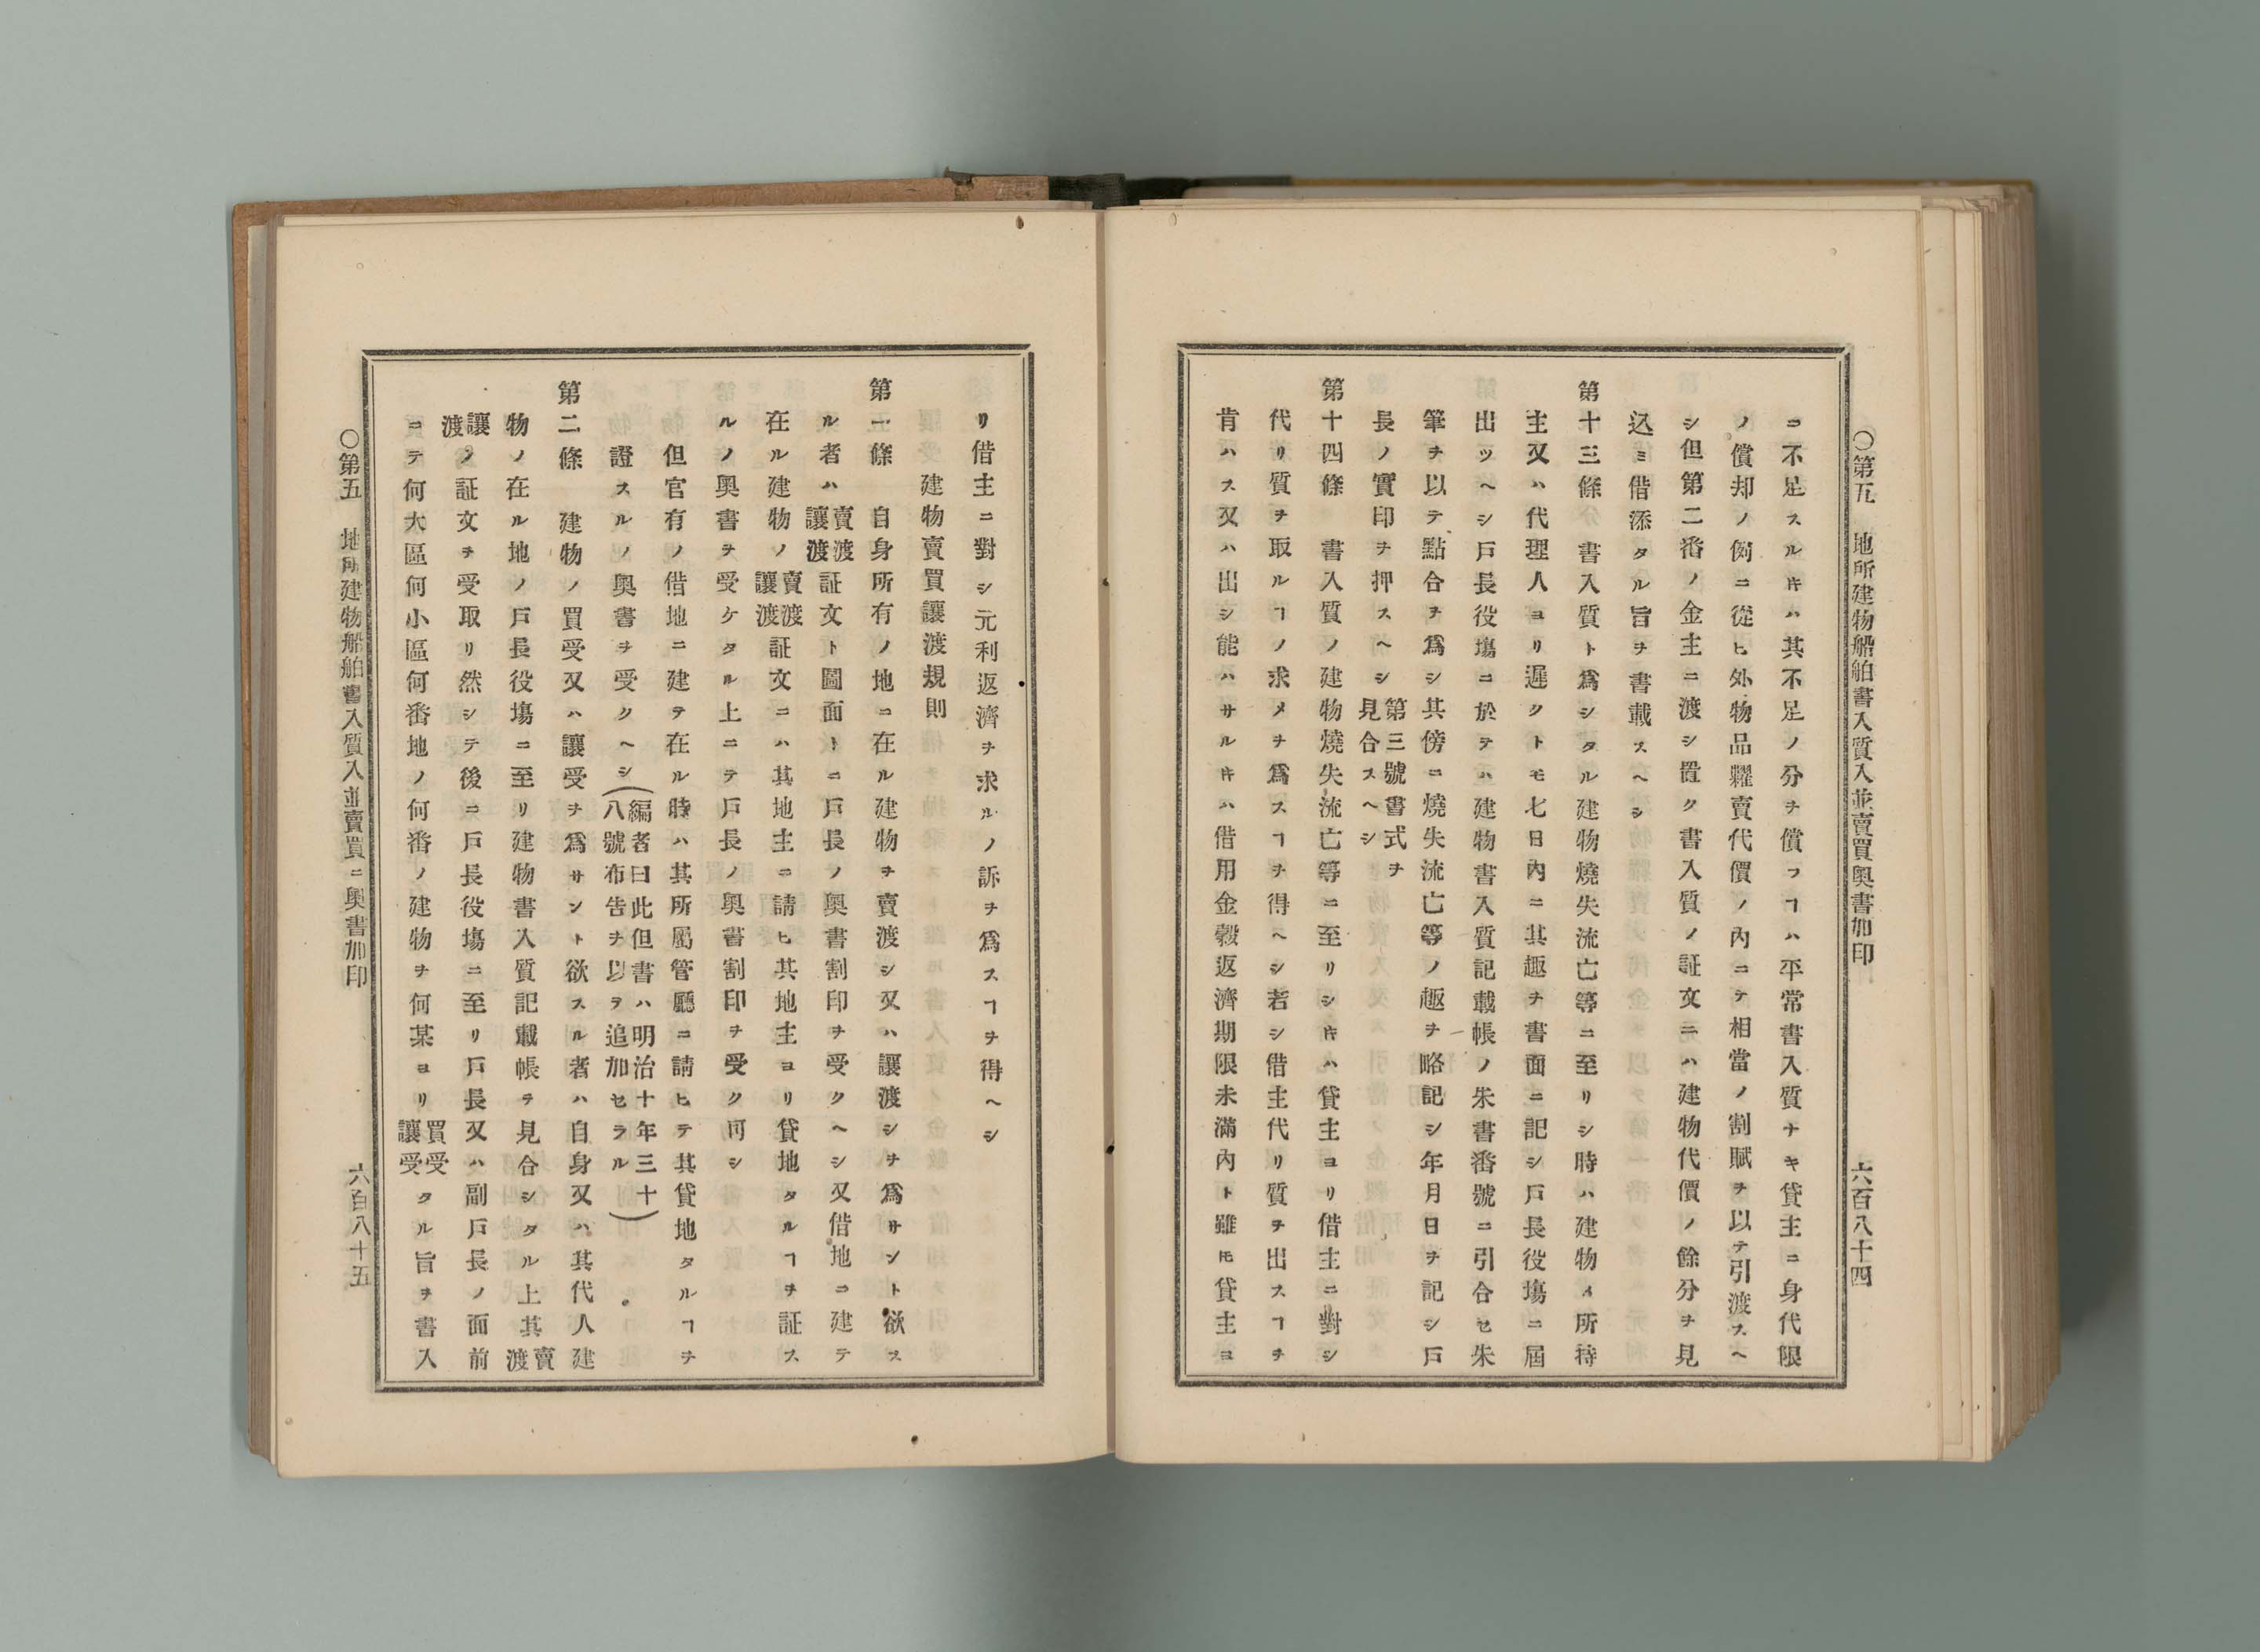 ○第五　地所建物船舶書入質入並賣買奥書加印　六百八十四
ニ不足スルキハ其不足ノ分ヲ償フヿハ平常書入質ナキ貸主ニ身代限
ノ償却ノ例ニ從ヒ外物品糶賣代價ノ内ニテ相當ノ割賦ヲ以テ引渡スヘ
シ但第二番ノ金主ニ渡シ置ク書入質ノ証文ニハ建物代價ノ餘分ヲ見
込ミ借添タル旨ヲ書載スヘシ
第十三條　書入質ト爲シタル建物燒失流亡等ニ至リシ時ハ建物ノ所持
主又ハ代理人ヨリ遲クトモ七日内ニ其趣ヲ書面ニ記シ戸長役塲ニ屆
出ツヘシ戸長役塲ニ於テハ建物書入質記載帳ノ朱書番號ニ引合セ朱
筆ヲ以テ點合ヲ爲シ其傍ニ燒失流亡等ノ趣ヲ略記シ年月日ヲ記シ戸
長ノ實印ヲ押スヘシ第三號書式ヲ見合スヘシ
第十四條　書入質ノ建物燒失流亡等ニ至リシキハ貸主ヨリ借主ニ對シ
代リ質ヲ取ルヿノ求メヲ爲スヿヲ得ヘシ若シ借主代リ質ヲ出スヿヲ
肯ハス又ハ出シ能ハサルキハ借用金穀返濟期限未滿内ト雖モ貸主ヨ
リ借主ニ對シ元利返濟ヲ求ルノ訴ヲ爲スヿヲ得ヘシ
建物賣買讓渡規則
第一條　自身所有ノ地ニ在ル建物ヲ賣渡シ又ハ讓渡シヲ爲サント欲ス
ル者ハ賣渡讓渡証文ト圖面トニ戸長ノ奥書割印ヲ受クヘシ又借地ニ建テ
在ル建物ノ賣渡讓渡証文ニハ其地主ニ請ヒ其地主ヨリ貸地タルヿヲ証ス
ルノ奥書ヲ受ケタル上ニテ戸長ノ奥書割印ヲ受ク可シ
但官有ノ借地ニ建テ在ル時ハ其所屬管廳ニ請ヒテ其貸地タルヿヲ
證スルノ奥書ヲ受クヘシ（編者曰此但書ハ明治十年三十八號布告ヲ以ヲ追加セラル）
第二條　建物ノ買受又ハ讓受ヲ爲サント欲スル者ハ自身又ハ其代人建
物ノ在ル地ノ戸長役塲ニ至リ建物書入質記載帳ヲ見合シタル上其賣渡
讓渡ノ証文ヲ受取リ然シテ後ニ戸長役塲ニ至リ戸長又ハ副戸長ノ面前
ニテ何大區何小區何番地ノ何番ノ建物ヲ何某ヨリ買受讓受タル旨ヲ書入
○第五　地所建物船舶書入質入並賣買ニ奥書加印　六百八十五